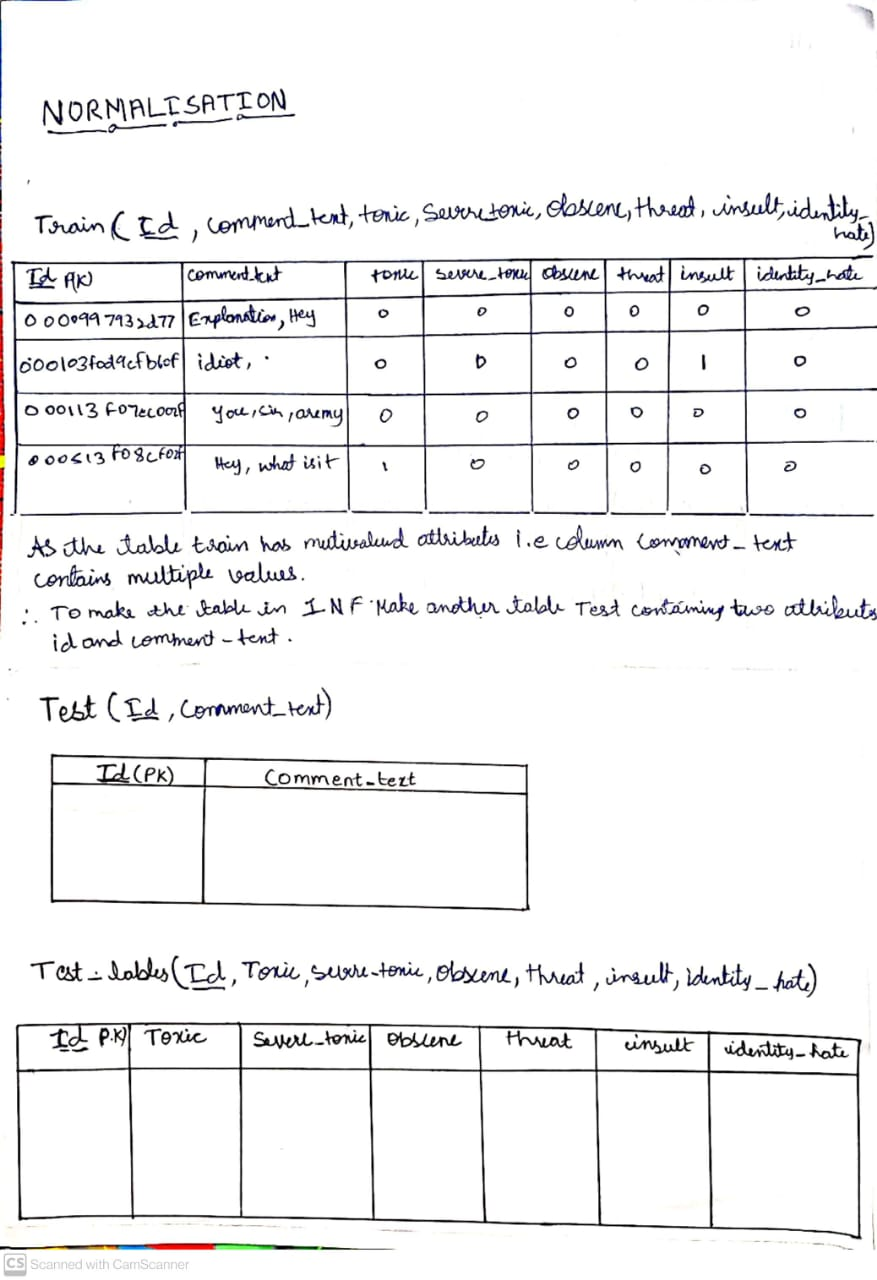 NORMALISATION
Train ( Id , comment_text, toxic, Severe toxic, Obscene, threat, insult, identity_
hate)
Id (PK) comment_text toxic severe_toxic obscene threat insult identity_hate
Explanation, Hey 0 0 0 0 0 0
idiot, . 0 0 0 0 1 0
You, sir, are my 0 0 0 0 0 0
Hey, what is it 1 0 0 0 0 0
As the table train has mutivalued attributes i.e column comment_text
contains multiple values.
∴ To make the table in 1NF Make another table Test containing two attributes
id and comment-text.
Test ( Id , Comment_text)
Id (PK) Comment_text
Test-lables ( Id , Toxic, severe-toxic, Obscene, threat, insult, identity_hate)
Id P.K) Toxic Severe_toxic obscene threat insult identity_hate
CS Scanned with CamScanner